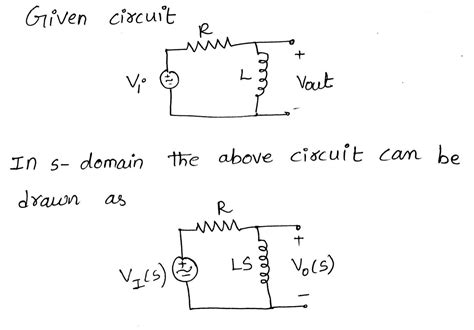 Given circuit
R
+
Vi
L
Vout
-
In s-domain the above circuit can be
drawn as
R
+
VI(s)
LS
Vo(s)
-